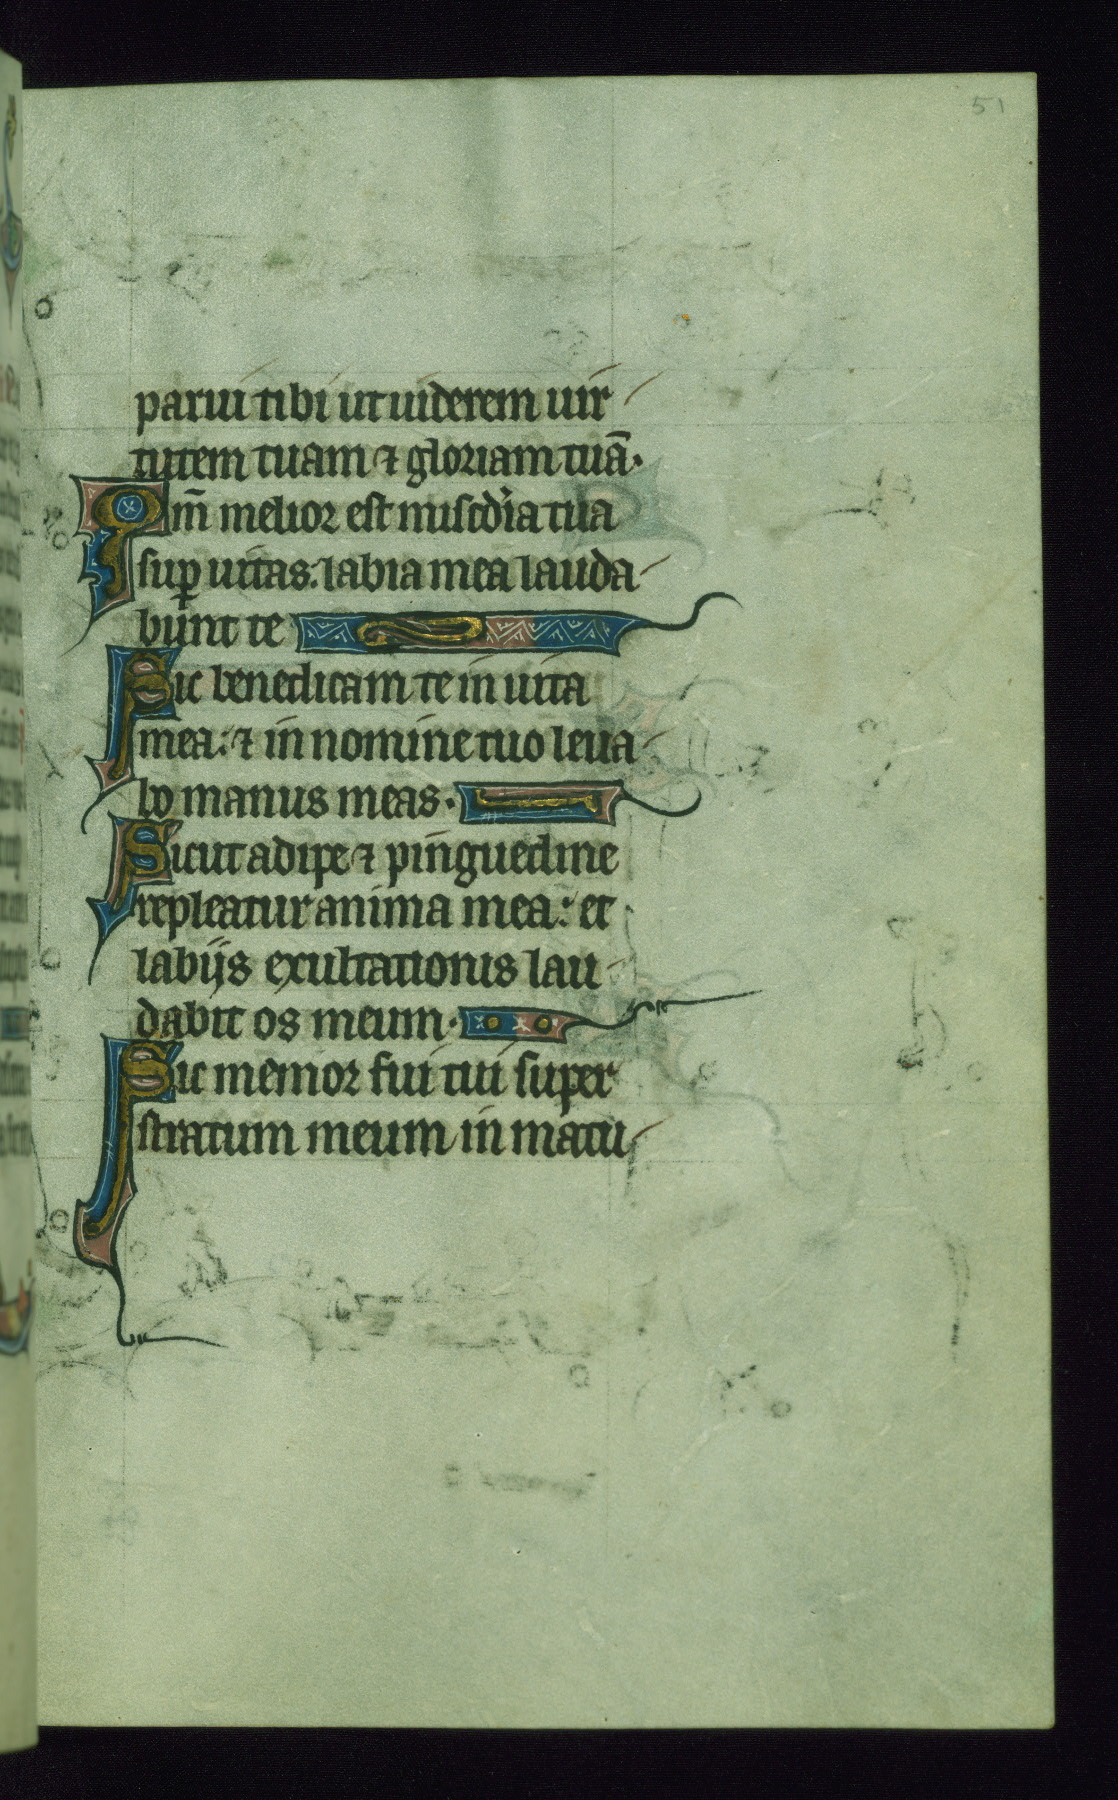 51
parui tibi ut uiderem uir
tutem tuam ⁊ gloriam tuā.
Qm̄ melior est misc̄dia tua
suꝑ uitas: labia mea lauda
bunt te
Sic benedicam te in uita
mea: ⁊ in nomine tuo leua
bo manus meas.
Sicut adipe ⁊ pinguedine
repleatur anima mea: et
labijs exultationis lau
dabit os meum.
Sic memor fui tui super
stratum meum in matu